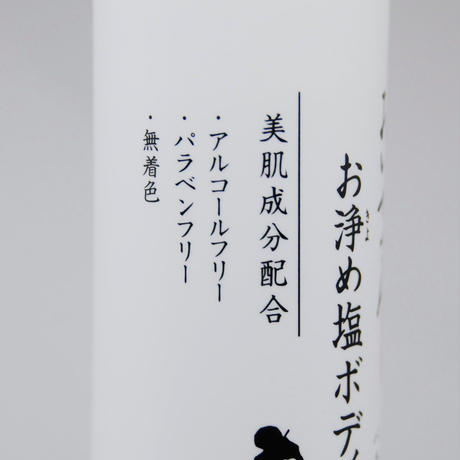 お浄め塩ボディ
きよ
美肌成分配合
・アルコールフリー
・パラベンフリー
・無着色